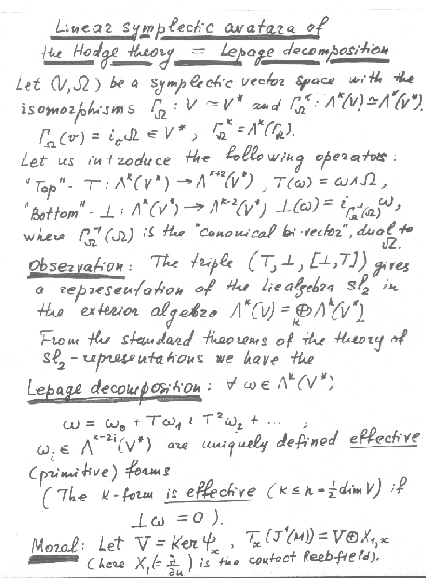 Linear symplectic avatara of
the Hodge theory = Lepage decomposition
Let (V,Ω) be a symplectic vector space with the
isomorphisms Γ_Ω : V ≃ V* and Γ_Ω^k : Λ^k(V) ≃ Λ^k(V*).
Γ_Ω(v) = i_v Ω ∈ V*, Γ_Ω^k = Λ^k(Γ_Ω).
Let us introduce the following operators:
"Top"- T : Λ^k(V*) → Λ^{k+2}(V*), T(ω) = ω∧Ω,
"Bottom"- ⊥ : Λ^k(V*) → Λ^{k-2}(V*) ⊥(ω) = i_{Γ_Ω^{-1}(Ω)} ω,
where Γ_Ω^{-1}(Ω) is the "canonical bi-vector", dual to
Ω.
Observation: The triple (T,⊥,[⊥,T]) gives
a representation of the Lie algebra sl_2 in
the exterior algebra Λ*(V) = ⊕_k Λ^k(V*)
From the standard theorems of the theory of
sl_2-representations we have the
Lepage decomposition: ∀ ω ∈ Λ^k(V*)
ω = ω_0 + Tω_1 + T²ω_2 + ... ,
ω_i ∈ Λ^{k-2i}(V*) are uniquely defined effective
(primitive) forms
(The k-form is effective (k ≤ n = ½ dim V) if
⊥ω = 0).
Moral: Let V = Ker ψ_x, T_x(J¹(M)) = V⊕X_{1,x}
(here X_1(= ∂/∂u) is the contact Reeb field).